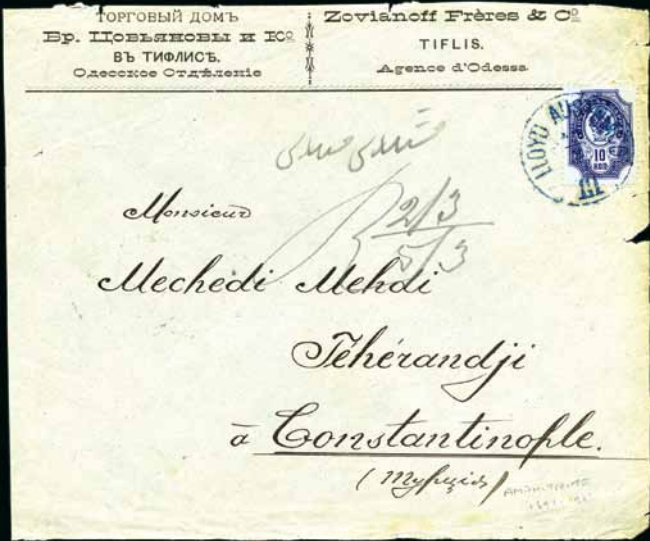 ТОРГОВЫЙ ДОМЪ
Бр. Цовьяновы и Ко
ВЪ ТИФЛИСѢ.
Одесское Отдѣленіе
Zovianoff Frères & Co
TIFLIS.
Agence d'Odessa
LLOYD AU
III
10
КОП
2/3
5/3
Monsieur
Mechedi Mehdi
Téhérandji
à Constantinople.
(Турція)